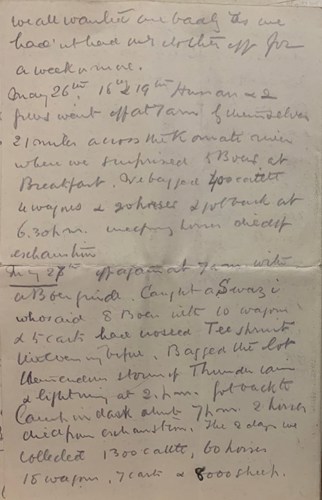 we all wanted one badly as we
had'nt had our clothes off for
a week or more.
May 26th. 16th & 19th Human & 2
guns went off at 7 am by themselves
21 miles across the Komate river
when we surprised 5 Boers at
Breakfast. We bagged 400 cattle
4 wagons & 20 horses & got back at
6.30 p.m. horses died of
exhaustion
May 27th off again at 7 am with
a Boer guide. Caught a Swazi
who said 8 Boers with 10 wagons
& 5 carts had crossed
evening before. Bagged the lot
storm of Thunder rain
& lightning at 2 p.m. got back to
Camp in dark about 7 p.m. 2 horses
died from exhaustion. The 2 days we
collected 1300 cattle, 60 horses
15 wagons, 7 carts & 8000 sheep.